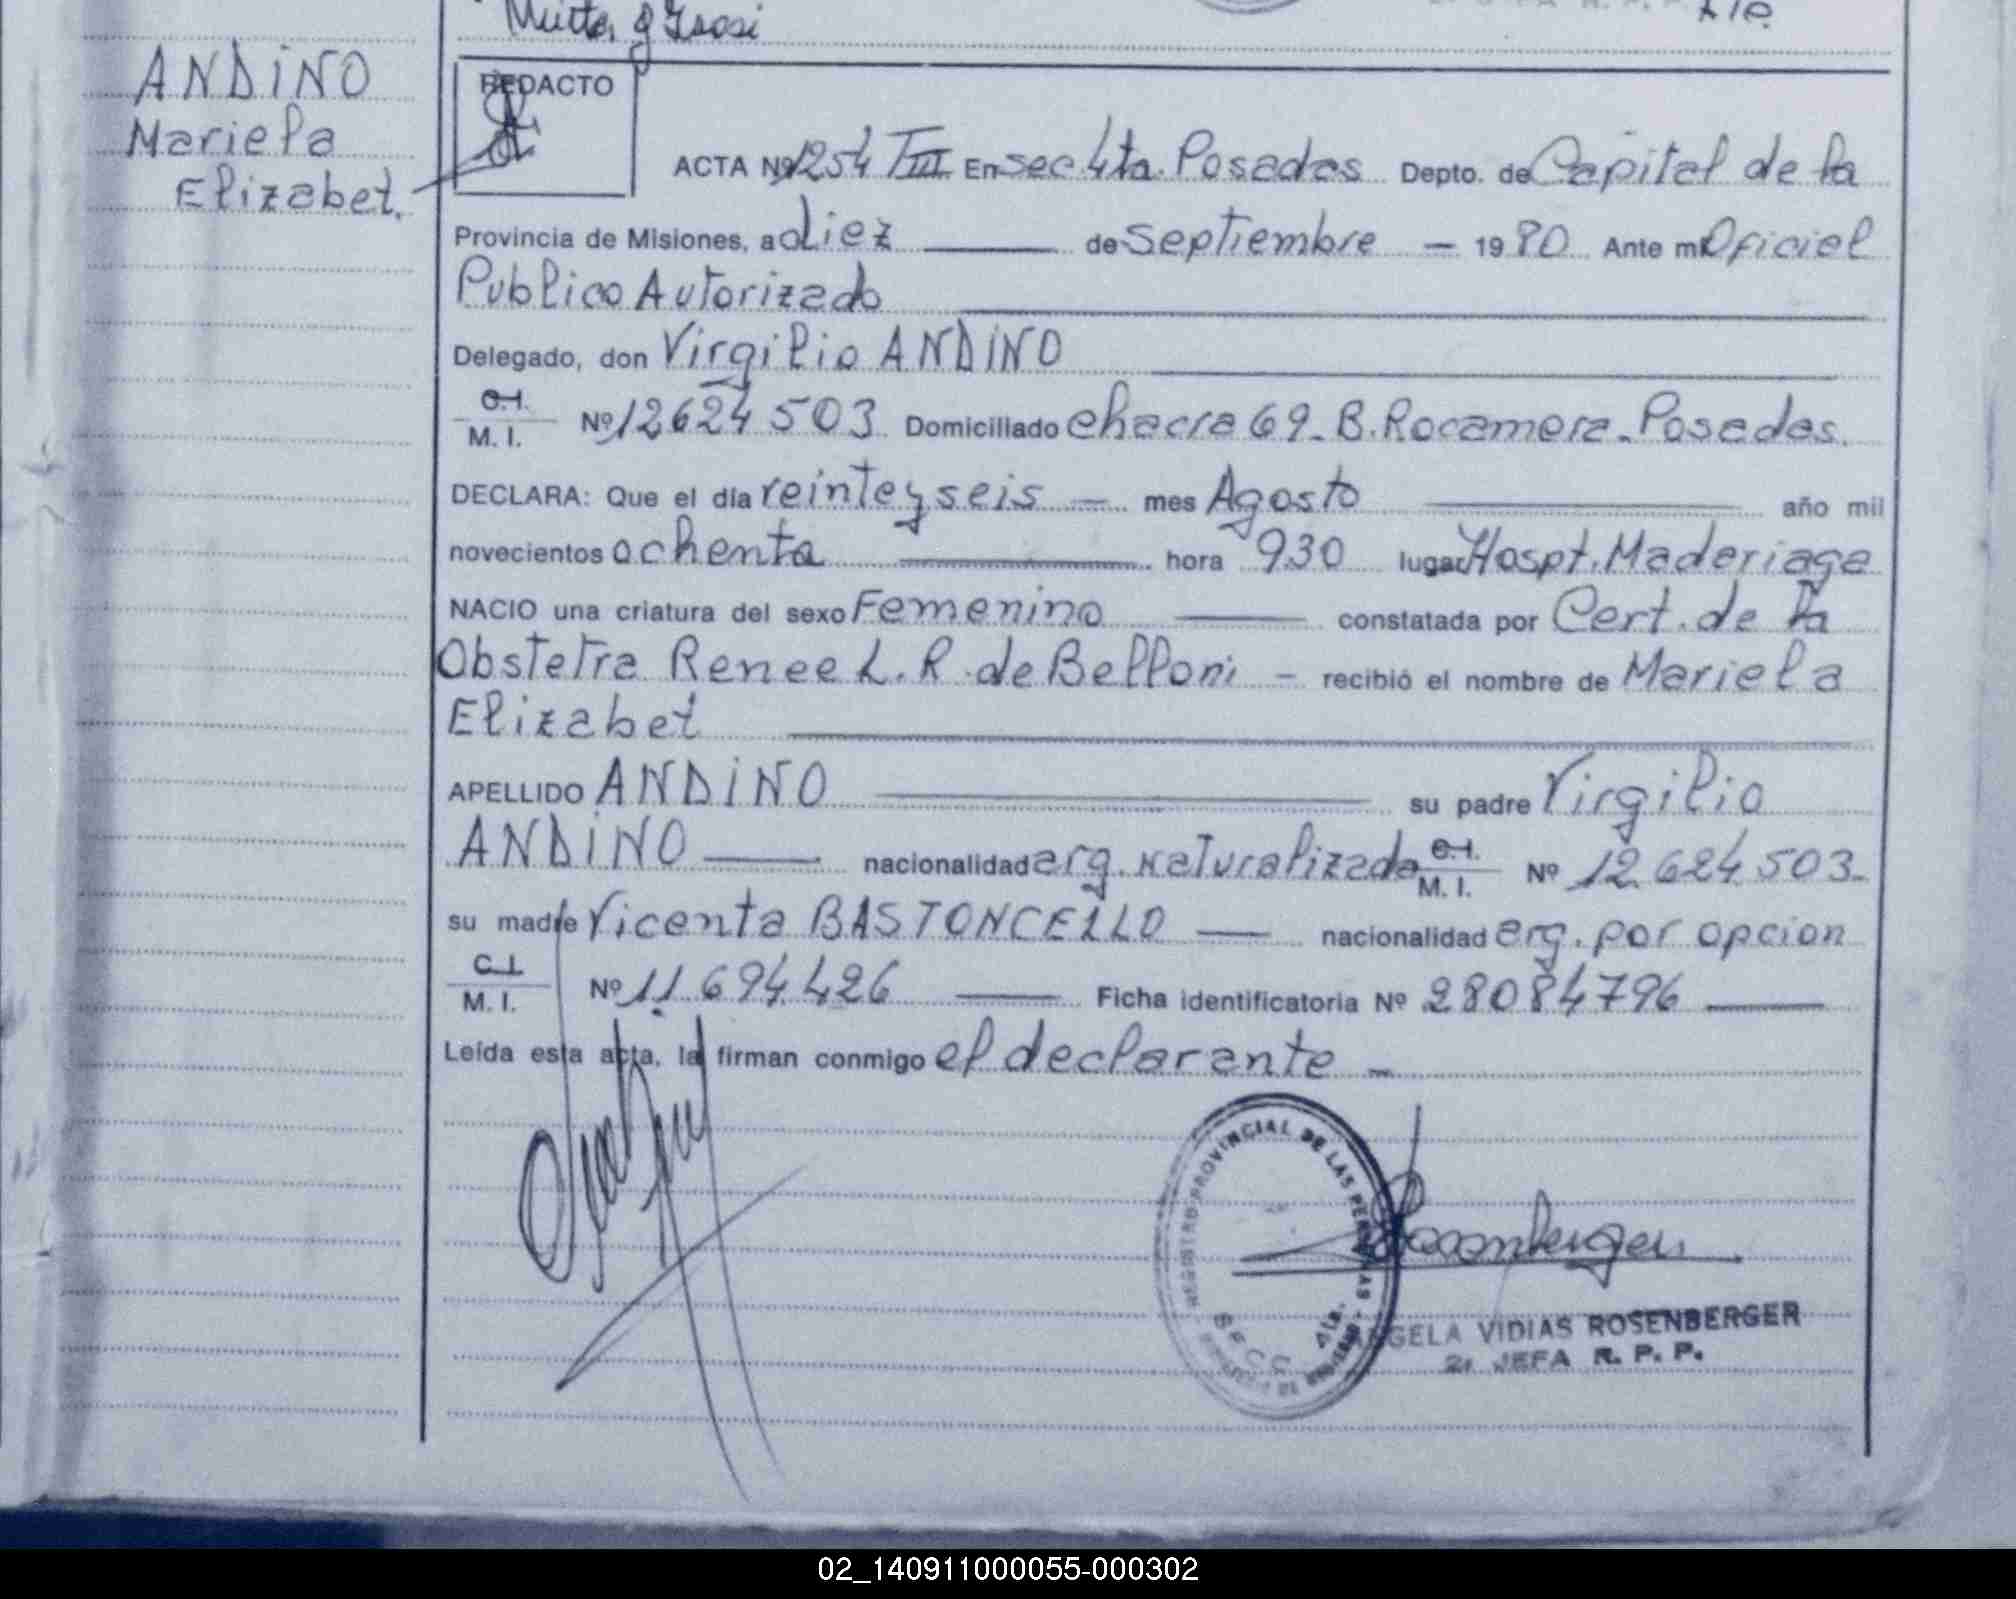 ANDINO
Mariela
Elizabet.
REDACTO
ACTA Nº 1254 TIII En sec 4ta. Posadas Depto. de Capital de la
Provincia de Misiones, a diez de septiembre 1980 Ante mi Oficial
Publico Autorizado
Delegado, don Virgilio ANDINO
C.I. M. I. Nº 12624503 Domiciliado chacra 69. B. Rocamora. Posadas.
DECLARA: Que el día veinteyseis mes Agosto año mil
novecientos ochenta hora 930 lugar Hospt. Maderiaga
NACIO una criatura del sexo Femenino constatada por Cert. de la
Obstetra Renee L. R. de Belloni - recibió el nombre de Mariela
Elizabet
APELLIDO ANDINO su padre Virgilio
ANDINO nacionalidad arg. naturalizado C.I. M. I. Nº 12.624.503.
su madre Vicenta BASTONCELLO nacionalidad arg. por opcion
C.I. M. I. Nº 11.694.426 Ficha identificatoria Nº 28084796
Leída esta acta, la firman conmigo el declarante -
REGISTRO PROVINCIAL DE LAS PERSONAS
Rosenberger
GELA VIDIAS ROSENBERGER
2. JEFA R. P. P.
02_140911000055-000302